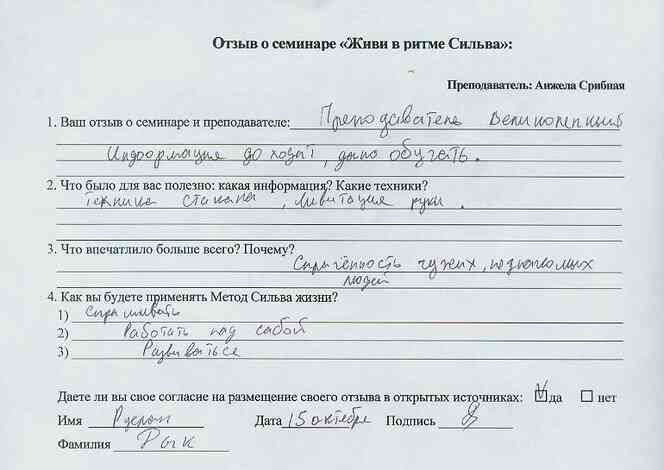 Отзыв о семинаре «Живи в ритме Сильва»:
Преподаватель: Анжела Срибная
1. Ваш отзыв о семинаре и преподавателе: Преподаватель Великолепный
Информация доходит, дано обучать.
2. Что было для вас полезно: какая информация? Какие техники?
Техника стакана, ливитация руки.
3. Что впечатлило больше всего? Почему?
Сплачённость чужих, незнакомых
людей
4. Как вы будете применять Метод Сильва жизни?
1) спрашивать
2) Работать над сабой
3) Развиваться
Даете ли вы свое согласие на размещение своего отзыва в открытых источниках: да нет
Имя Руслан Дата 15 октября Подпись
Фамилия